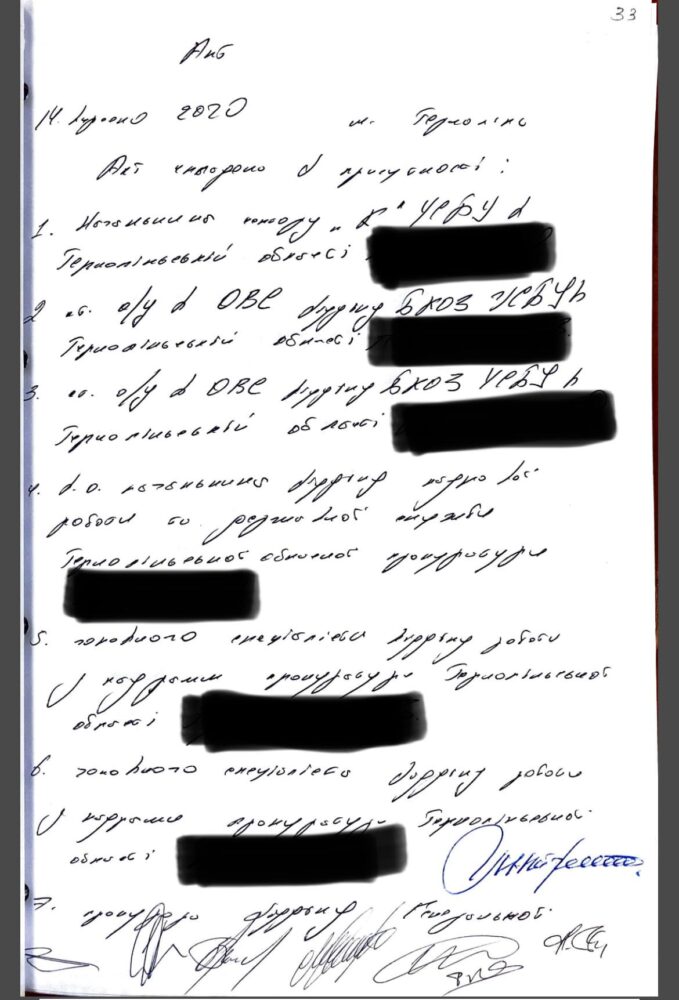 33
Акт
14. серпня 2020 м. Тернопіль
Акт складено в присутності:
1. Начальника сектору "К" УСБУ в
Тернопільській області
2 ст. о/у в ОВС відділу БКОЗ УСБУ в
Тернопільській області
3. ст. о/у в ОВС відділу БКОЗ УСБУ в
Тернопільській області
4. в.о. начальника відділу кадрової
роботи та державної служби
Тернопільської обласної прокуратури
5. головного спеціаліста відділу роботи
з кадрами прокуратури Тернопільської
області
6. головного спеціаліста відділу роботи
з кадрами прокуратури Тернопільської
області
7. прокурора відділу Генеральної